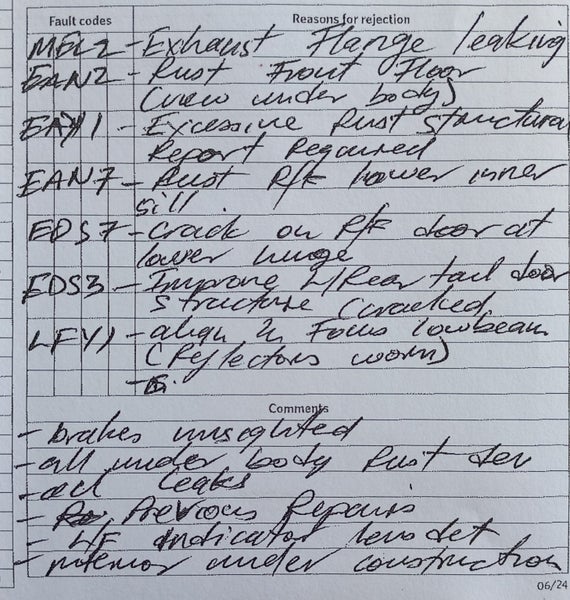 Fault codes Reasons for rejection
MEL2 - Exhaust Flange leaking
EAN2 - Rust Front Floor
(view under body)
EAY1 - Excessive Rust structural
Report Required
EAN7 - Rust R/F Lower inner
sill.
EDS7 - Crack on R/F door at
lower hinge
EDS3 - Improve L/Rear tail door
structure (cracked
LFY1 - align & Focus lowbeam
(Reflectors worn)
Comments
- brakes unsighted
- all under body Rust dev
- oil leaks
- Previous Repairs
- L/F indicator lens det
- interior under construction
06/24